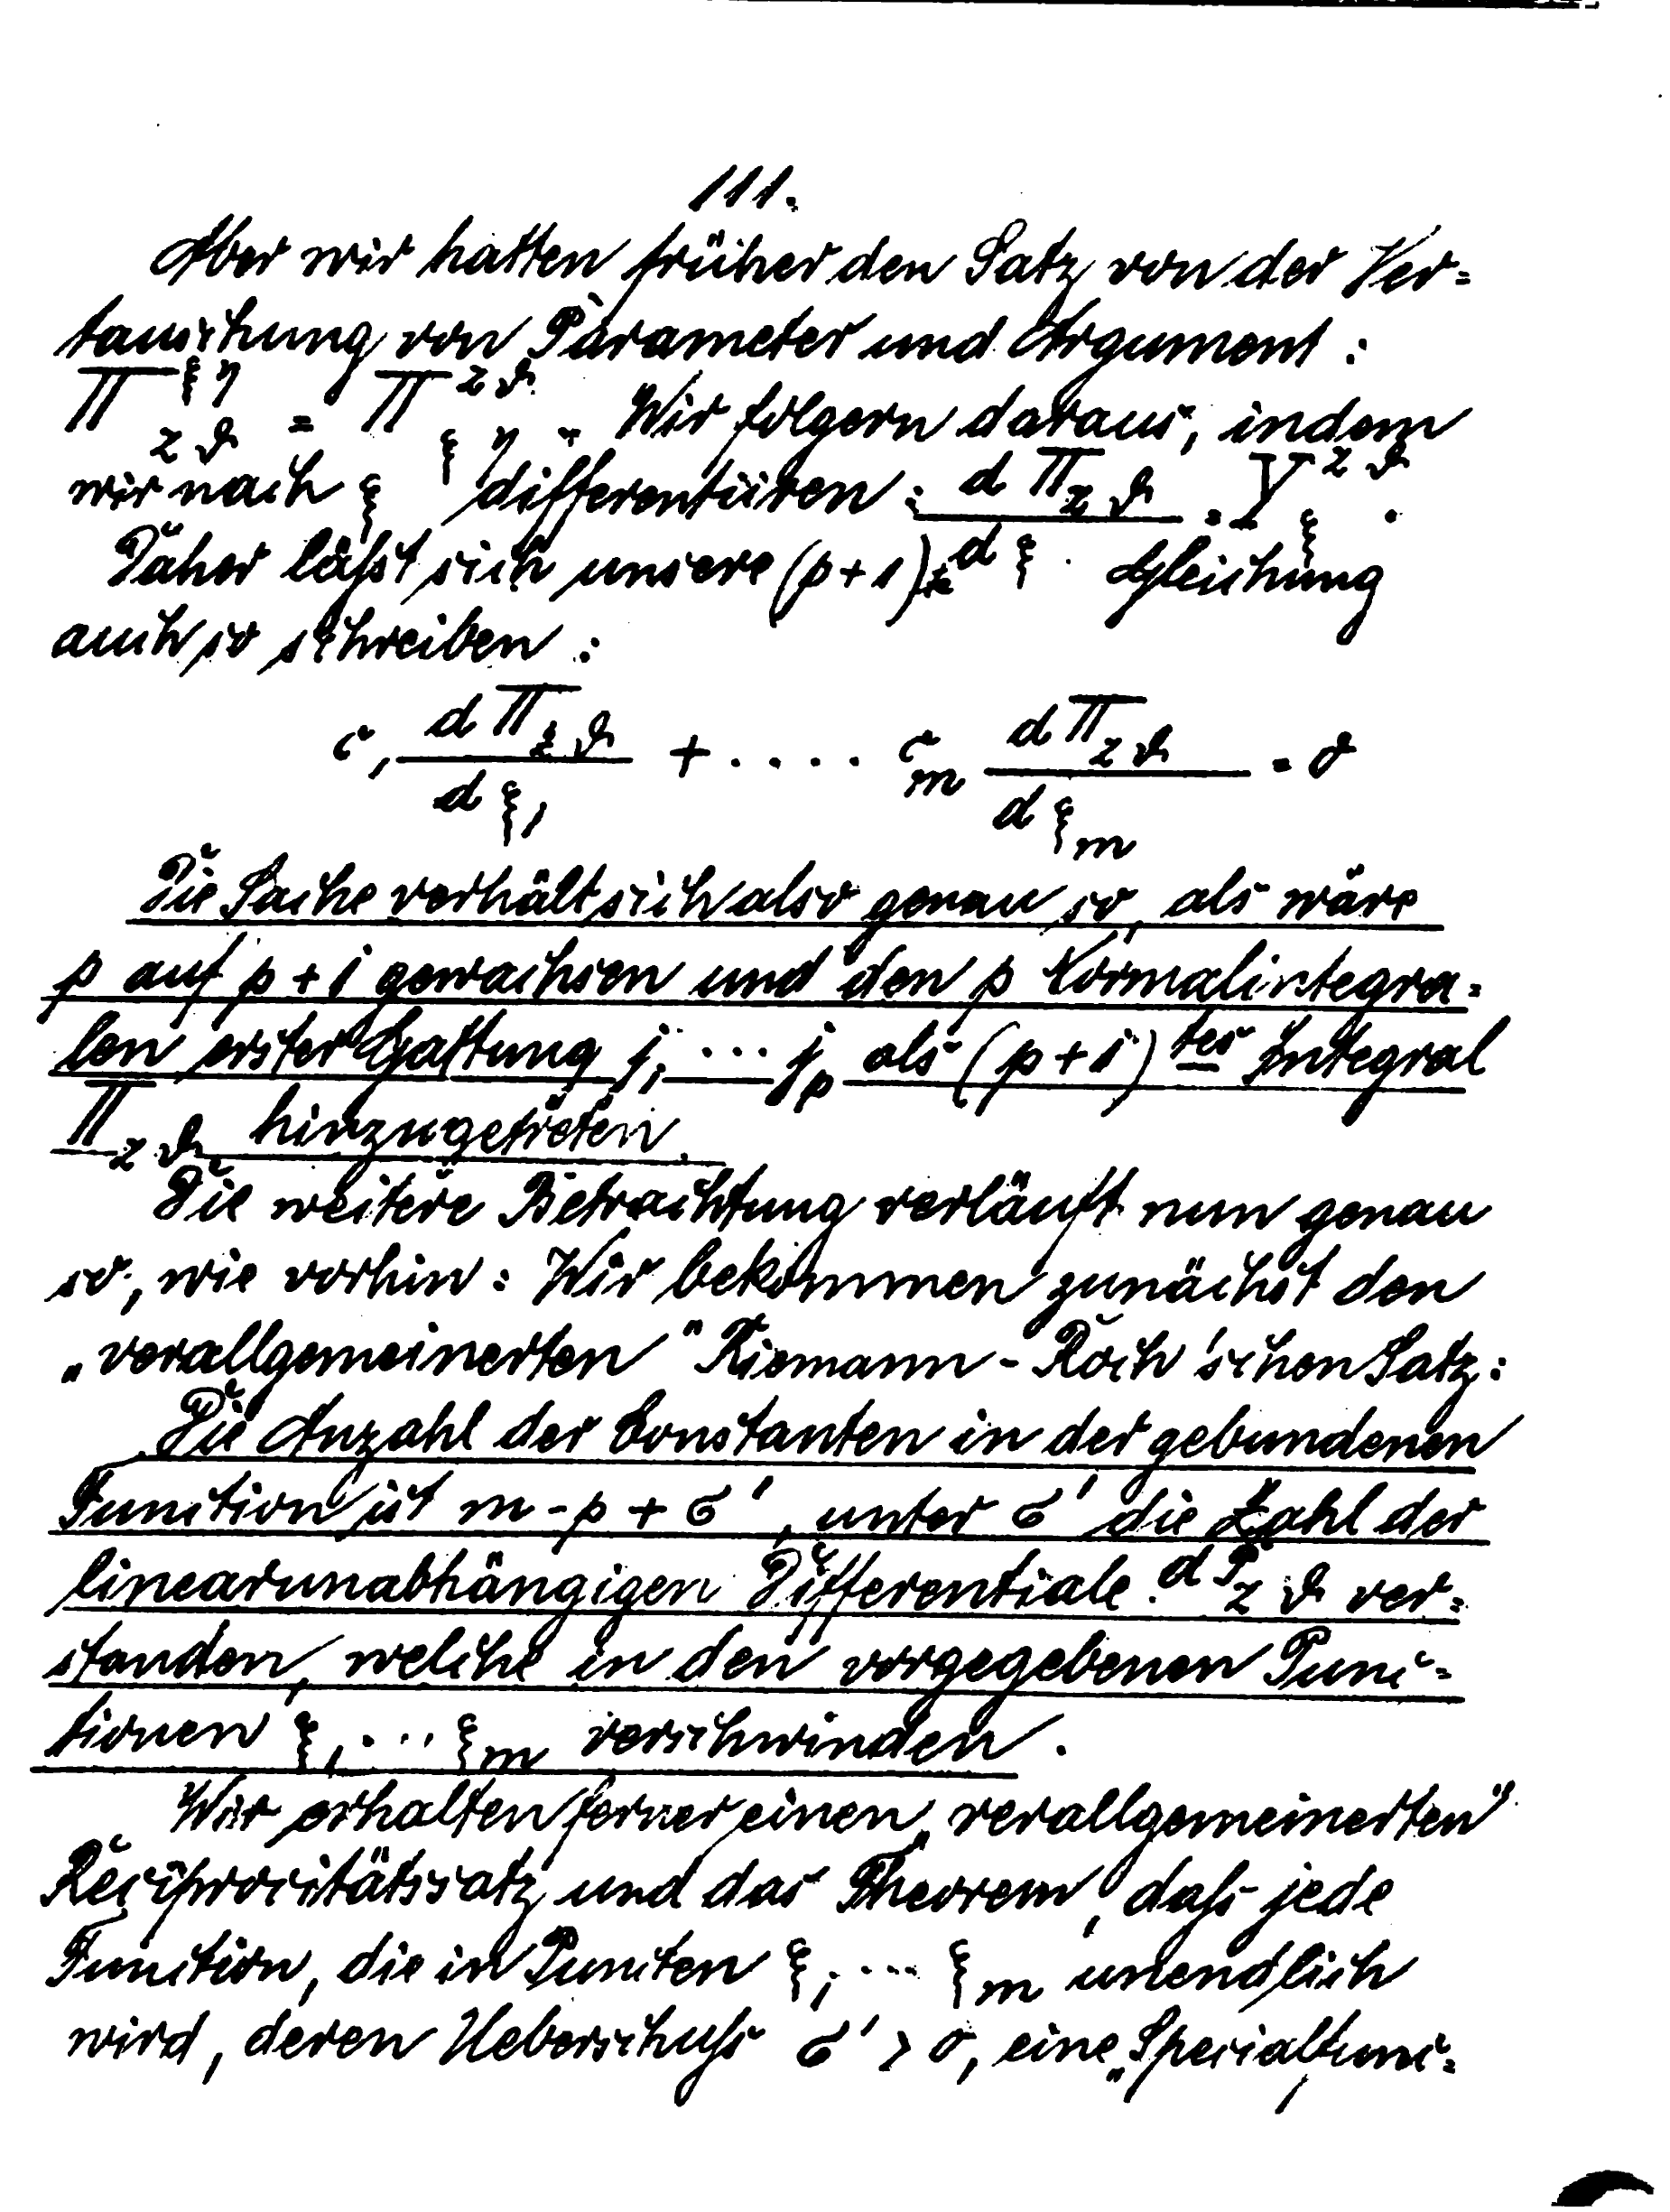 111.
Aber wir hatten früher den Satz von der Ver=
tauschung von Parameter und Argument:
Π^{ξη}_{zϑ} = Π^{zϑ}_{ξη}. Wir folgern daraus, indem
wir nach ξ differentiiren: dΠ_{zϑ}/dξ = Y^{zϑ}_ξ.
Daher läßt sich unsere (p+1)te Gleichung
auch so schreiben:
c_1 dΠ_{zϑ}/dξ_1 + .... c_m dΠ_{zϑ}/dξ_m = 0
Die Sache verhält sich also genau so, als wäre
p auf p+1 gewachsen und den p Normalintegra=
len erster Gattung j_1 ... j_p als (p+1)tes Integral
Π_{zϑ} hinzugetreten.
Die weitere Betrachtung verläuft nun genau
so, wie vorhin: Wir bekommen zunächst den
„verallgemeinerten" Riemann-Roch'schen Satz:
Die Anzahl der Constanten in der gebundenen
Function ist m-p+σ', unter σ' die Zahl der
linearunabhängigen Differentiale dP_{zϑ} ver=
standen, welche in den vorgegebenen Punc=
tionen ξ_1 ... ξ_m verschwinden.
Wir erhalten ferner einen „verallgemeinerten"
Reciprocitätssatz und das Theorem, daß jede
Function, die in Puncten ξ_1 ... ξ_m unendlich
wird, deren Ueberschuß σ' > 0, eine „Specialfunc=